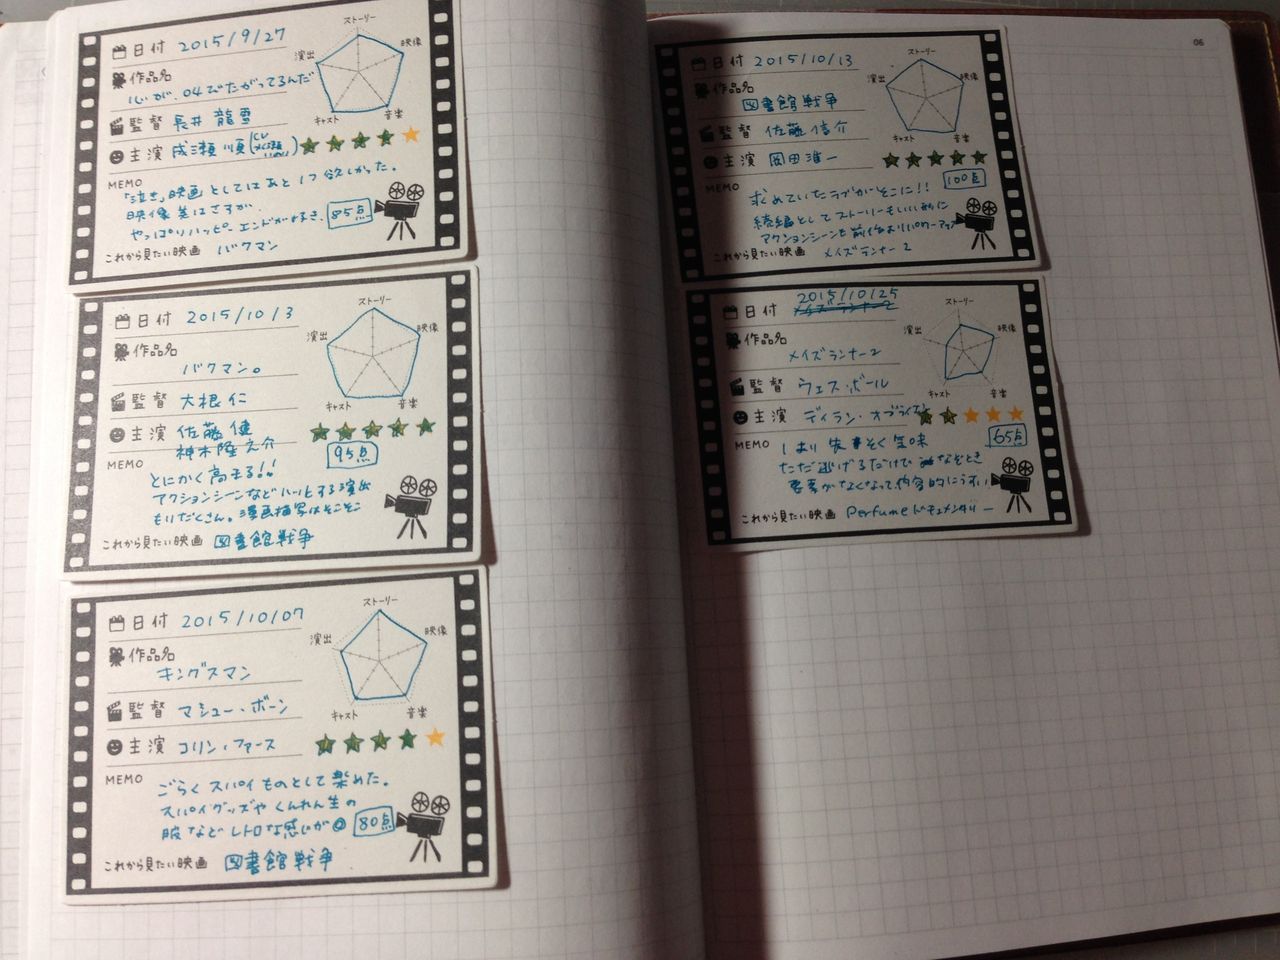 日付 2015/9/27
作品名
心が、叫びたがってるんだ
監督 長井 龍雪
主演 成瀬 順
ストーリー
映像
音楽
キャスト
演出
MEMO
「泣き」映画としてはあと1つ欲しかった。
映像美はさすが。
やっぱりハッピーエンドが好き。 85点
これから見たい映画 バクマン
日付 2015/10/3
作品名
バクマン。
監督 大根 仁
主演 佐藤 健
神木隆之介
ストーリー
映像
音楽
キャスト
演出
95点
MEMO
とにかく高まる!!
アクションシーンなどハッとする演出
もりだくさん。漫画描写はそこそこ
これから見たい映画 図書館戦争
日付 2015/10/07
作品名
キングスマン
監督 マシュー・ボーン
主演 コリン・ファース
ストーリー
映像
音楽
キャスト
演出
MEMO
ごらくスパイものとして楽めた。
スパイグッズやくんれん生の
服などレトロな感じが◎ 80点
これから見たい映画 図書館戦争
06
日付 2015/10/13
作品名
図書館戦争
監督 佐藤信介
主演 岡田准一
ストーリー
映像
音楽
キャスト
演出
100点
MEMO
求めていたラブがそこに!!
続編としてストーリーもいい形に
アクションシーンも前作よりパワーアップ
これから見たい映画 メイズランナー2
日付 2015/10/25
メイズランナー2
作品名
メイズランナー2
監督 ウェス・ボール
主演 ディラン・オブライエン
ストーリー
映像
音楽
キャスト
演出
65点
MEMO
1より失そく気味
ただ逃げるだけで なぞとき
要素がなくなって内容的にうすい
これから見たい映画 Perfumeドキュメンタリー